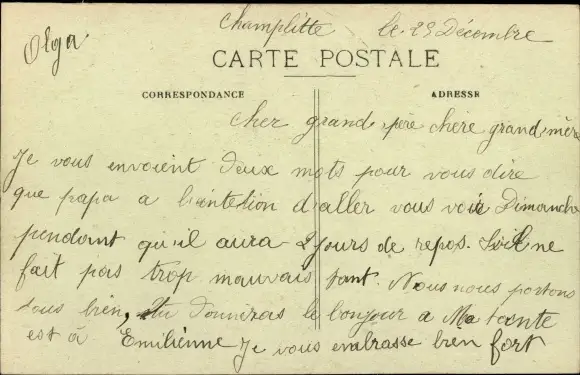 Olga
Champlitte le 23 Décembre
CARTE POSTALE
CORRESPONDANCE ADRESSE
Cher grand père chère grand mère
Je vous envoient deux mots pour vous dire
que papa a l'intetion d'aller vous voir Dimanche
pendant qu'il aura 2 jours de repos. S'il ne
fait pas trop mauvais tant. Nous nous portons
tous bien, tu donneras le bonjour a Ma tante
est à Emilienne Je vous embrasse bien fort